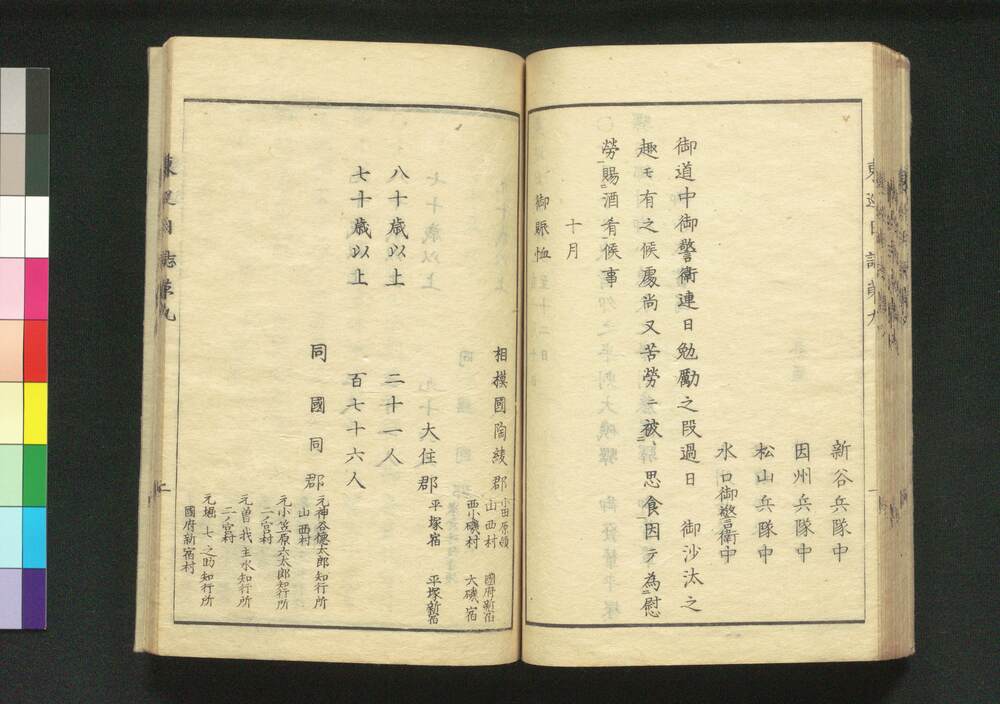 東巡日誌第九
一
新谷兵隊中
因州兵隊中
松山兵隊中
水口御警衛中
御道中御警衛連日勉勵之段過日　御沙汰之
趣モ有之候處尚又苦勞ニ被　思食因テ為慰
勞賜酒肴候事
十月
御賑恤
相摸國陶綾郡
小田原領
山西村　國府新宿
西小磯村　大磯宿
大住郡
平塚宿　平塚新宿
八十歳以上　二十一人
七十歳以上　百七十六人
同國同郡
元神谷德太郎知行所
山西村
元小笠原六太郎知行所
二ノ宮村
元曽我主水知行所
二ノ宮村
元堀七之助知行所
國府新宿村
東巡日誌第九